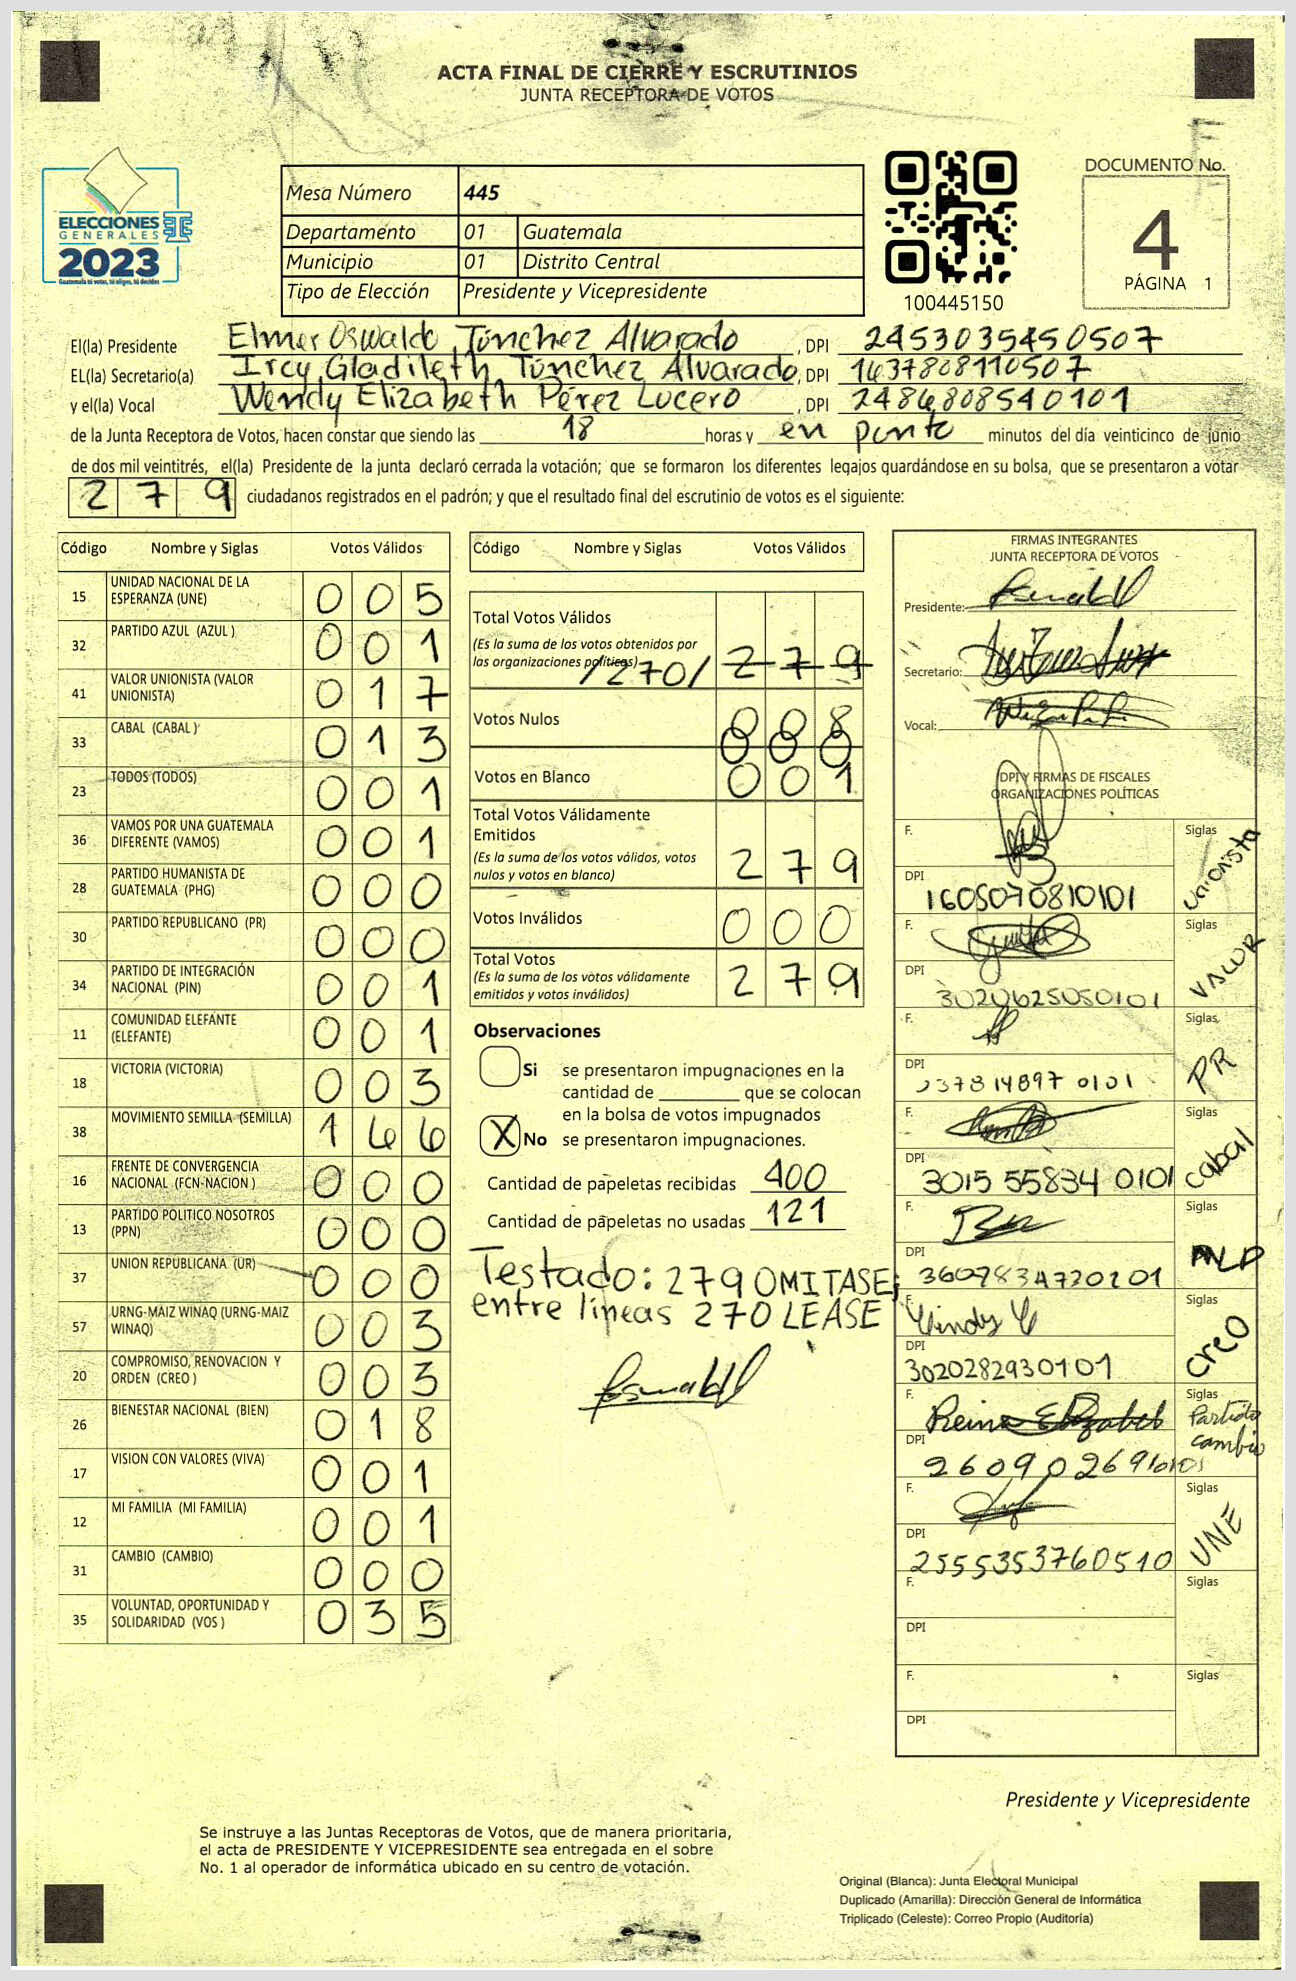 ACTA FINAL DE CIERRE Y ESCRUTINIOS
JUNTA RECEPTORA DE VOTOS
ELECCIONES
GENERALES
2023
Guatemala tú votas, tú eliges, tú decides
Mesa Número 445
Departamento 01 Guatemala
Municipio 01 Distrito Central
Tipo de Elección Presidente y Vicepresidente
100445150
DOCUMENTO No.
4
PÁGINA 1
El(la) Presidente Elmer Oswaldo Túnchez Alvarado, DPI 2453035450507
EL(la) Secretario(a) Ircy Gladileth Túnchez Alvarado, DPI 1637808110507
y el(la) Vocal Wendy Elizabeth Pérez Lucero, DPI 2486808540101
de la Junta Receptora de Votos, hacen constar que siendo las 18 horas y en punto minutos del día veinticinco de junio
de dos mil veintitrés, el(la) Presidente de la junta declaró cerrada la votación; que se formaron los diferentes legajos guardándose en su bolsa, que se presentaron a votar
279 ciudadanos registrados en el padrón; y que el resultado final del escrutinio de votos es el siguiente:
Código Nombre y Siglas Votos Válidos
15 UNIDAD NACIONAL DE LA ESPERANZA (UNE) 005
32 PARTIDO AZUL (AZUL ) 001
41 VALOR UNIONISTA (VALOR UNIONISTA) 017
33 CABAL (CABAL ) 013
23 TODOS (TODOS) 001
36 VAMOS POR UNA GUATEMALA DIFERENTE (VAMOS) 001
28 PARTIDO HUMANISTA DE GUATEMALA (PHG) 000
30 PARTIDO REPUBLICANO (PR) 000
34 PARTIDO DE INTEGRACIÓN NACIONAL (PIN) 001
11 COMUNIDAD ELEFANTE (ELEFANTE) 001
18 VICTORIA (VICTORIA) 003
38 MOVIMIENTO SEMILLA (SEMILLA) 166
16 FRENTE DE CONVERGENCIA NACIONAL (FCN-NACION ) 000
13 PARTIDO POLITICO NOSOTROS (PPN) 000
37 UNION REPUBLICANA (UR) 000
57 URNG-MAIZ WINAQ (URNG-MAIZ WINAQ) 003
20 COMPROMISO, RENOVACION Y ORDEN (CREO ) 003
26 BIENESTAR NACIONAL (BIEN) 018
17 VISION CON VALORES (VIVA) 001
12 MI FAMILIA (MI FAMILIA) 001
31 CAMBIO (CAMBIO) 000
35 VOLUNTAD, OPORTUNIDAD Y SOLIDARIDAD (VOS ) 035
Código Nombre y Siglas Votos Válidos
Total Votos Válidos
(Es la suma de los votos obtenidos por
las organizaciones políticas) /270/ 279
Votos Nulos 008
000
Votos en Blanco 001
Total Votos Válidamente
Emitidos
(Es la suma de los votos válidos, votos
nulos y votos en blanco) 279
Votos Inválidos 000
Total Votos
(Es la suma de los votos válidamente
emitidos y votos inválidos) 279
Observaciones
Si se presentaron impugnaciones en la
cantidad de ________ que se colocan
en la bolsa de votos impugnados
X No se presentaron impugnaciones.
Cantidad de papeletas recibidas 400
Cantidad de papeletas no usadas 121
Testado: 279 OMITASE;
entre líneas 270 LEASE
FIRMAS INTEGRANTES
JUNTA RECEPTORA DE VOTOS
Presidente:
Secretario:
Vocal:
DPI Y FIRMAS DE FISCALES
ORGANIZACIONES POLÍTICAS
F. Siglas Unionista
DPI 1605070810101
F. Siglas VALOR
DPI 3020625050101
F. Siglas PR
DPI 337814897 0101
F. Siglas cabal
DPI 3015 55834 0101
F. Siglas MLP
DPI 3609834720101
F. Cindy C Siglas Creo
DPI 3020282930101
F. Reina Elizabet Siglas Partido cambio
DPI 2609026910101
F. Siglas UNE
DPI 2555353760510
F. Siglas
DPI
F. Siglas
DPI
Presidente y Vicepresidente
Se instruye a las Juntas Receptoras de Votos, que de manera prioritaria,
el acta de PRESIDENTE Y VICEPRESIDENTE sea entregada en el sobre
No. 1 al operador de informática ubicado en su centro de votación.
Original (Blanca): Junta Electoral Municipal
Duplicado (Amarilla): Dirección General de Informática
Triplicado (Celeste): Correo Propio (Auditoría)